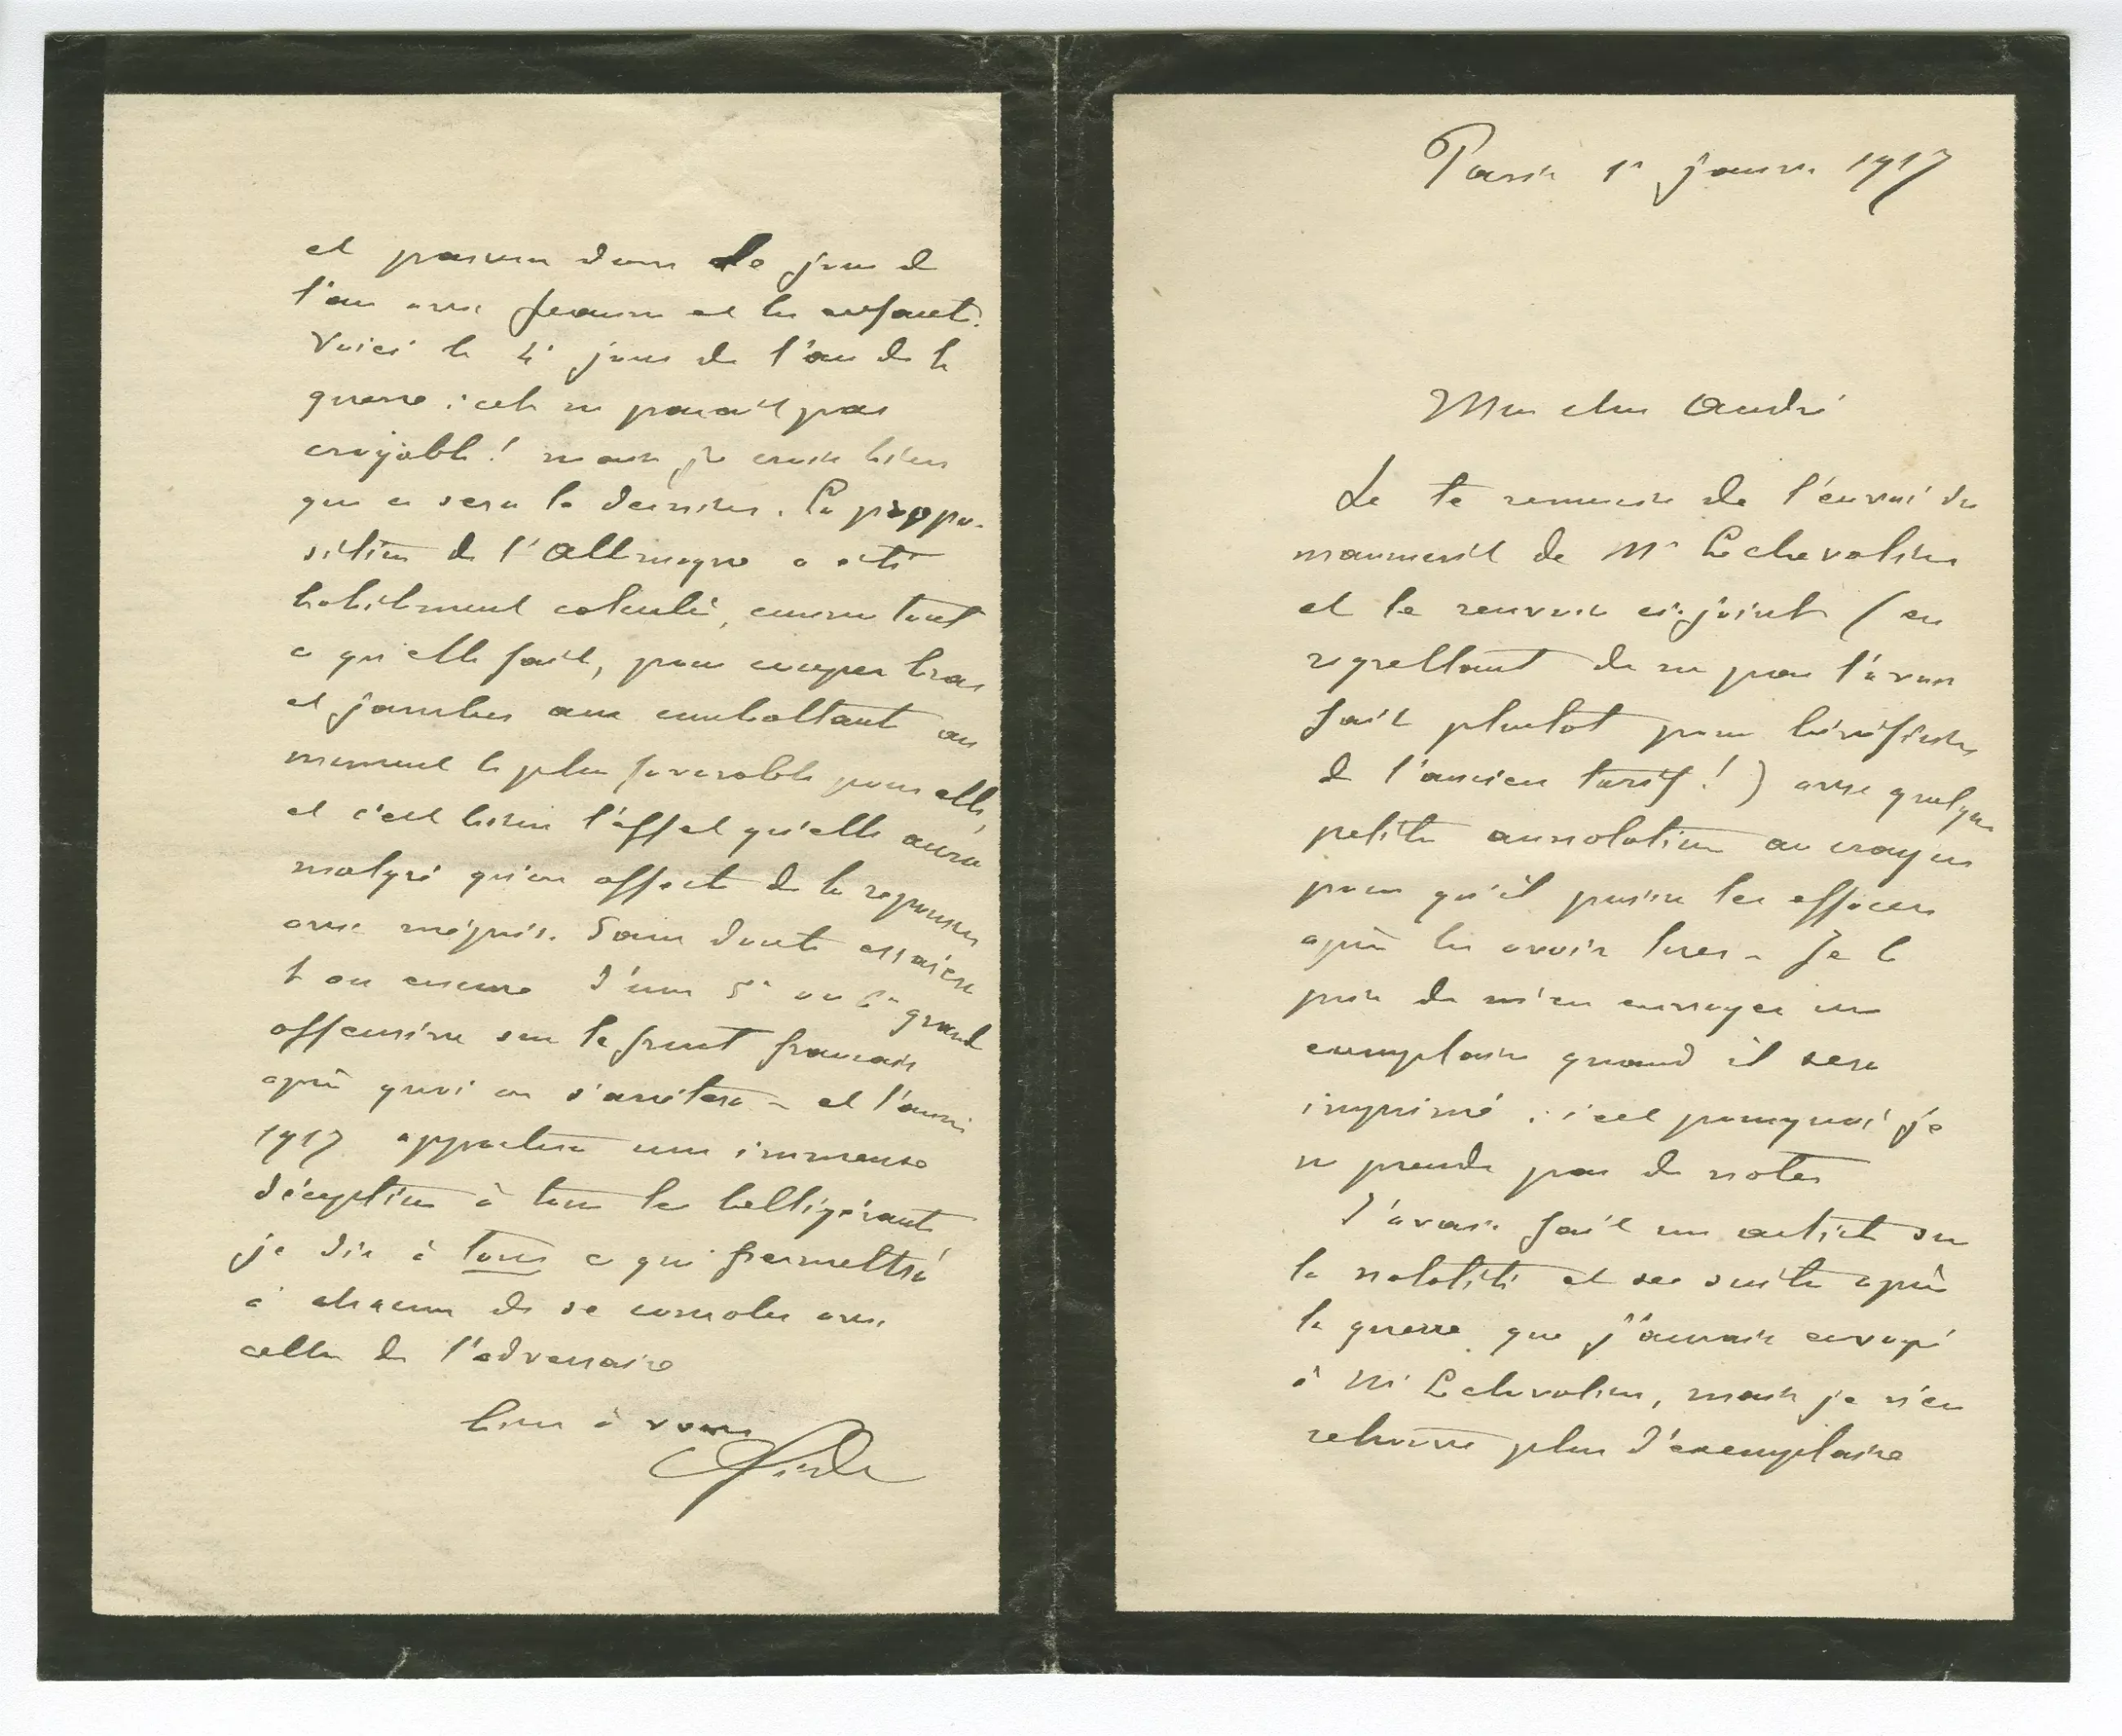 Paris 1r janvier 1917
Mon cher André
Je te remercie de l'envoi du
manuscrit de Mr Lechevalier
et le renvoie ci-joint (en
regrettant de ne pas l'avoir
fait plutot pour bénéficier
de l'ancien tarif!) avec quelques
petites annotations au crayon
pour qu'il puisse les effacer
après les avoir lues - Je le
prie de m'en envoyer un
exemplaire quand il sera
imprimé : c'est pourquoi je
ne prends pas de notes
J'avais fait un article sur
la natalité et ses suites après
la guerre que j'aurais envoyé
à Mr Lechevalier, mais je n'en
retrouve plus d'exemplaire
et passerons le jour de
l'an avec Jeanne et les enfants.
Voici le 4e jour de l'an de la
guerre : cela ne parait pas
croyable! mais je crois bien
que ce sera le dernier. La propo-
sition de l'Allemagne a été
habilement calculée, comme tout
ce qu'elle fait, pour couper bras
et jambes aux combattants au
moment le plus favorable pour elle,
et c'est bien l'effet qu'elle aura
malgré qu'on affecte de la repousser
avec mépris. Sans doute essaiera
t on encore d'une 5e ou 6e grande
offensive sur le front français
après quoi on s'arrêtera - et l'année
1917 apportera une immense
déception à tous les belligérants
je dis à tous ce qui permettra
à chacun de se consoler avec
celle de l'adversaire
bien à vous